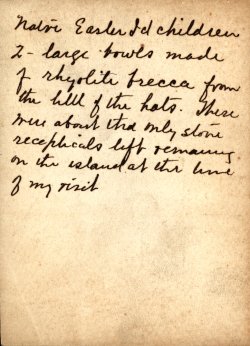 Native Easter Id children
2- large bowls made
of rhyolite brecca from
the hill of the hats. These
were about the only stone
recepticals left remaining
on the island at the time
of my visit